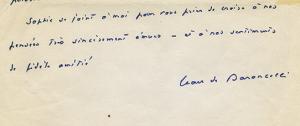 Sophie se joint à moi pour vous prier de croire à nos
pensées très sincèrement émues – et à nos sentiments
de fidèle amitié
Jean de Baroncelli